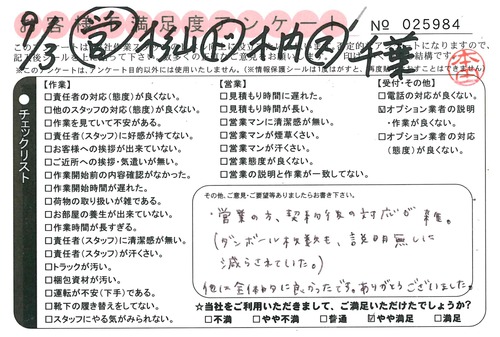 お客様満足度アンケート
№ 025984
9/3 営 杉山 木内 千葉
チェックリスト
【作業】
□責任者の対応(態度)が良くない。
□他のスタッフの対応(態度)が良くない。
□作業を見ていて不安がある。
□責任者(スタッフ)に好感が持てない。
□お客様への挨拶が出来ていない。
□ご近所への挨拶・気遣いが無い。
□作業開始前の内容確認がなかった。
□作業開始時間が遅れた。
□荷物の取り扱いが雑である。
□お部屋の養生が出来ていない。
□作業時間が長すぎる。
□責任者(スタッフ)に清潔感が無い。
□責任者(スタッフ)が汗くさい。
□トラックが汚い。
□梱包資材が汚い。
□運転が不安(下手)である。
□靴下の履き替えをしてない。
□スタッフにやる気がみられない。
【営業】
□見積もり時間に遅れた。
□見積もり時間が長い。
□営業マンに清潔感が無い。
□営業マンが煙草くさい。
□営業マンが汗くさい。
□営業態度が良くない。
□営業の説明と作業が一致してない。
【受付・その他】
□電話の対応が良くない。
☑オプション業者の説明
・作業が良くない。
□オプション業者の対応
(態度)が良くない。
その他、ご意見・ご要望等ありましたらお書き下さい。
・営業の方、契約後の対応が雑。
(ダンボール枚数も、説明無しに
減らされていた。)
他は全体的に良かったです。ありがとうございました。
☆当社をご利用いただきまして、ご満足いただけたでしょうか?
□不満 □やや不満 □普通 ☑やや満足 □満足